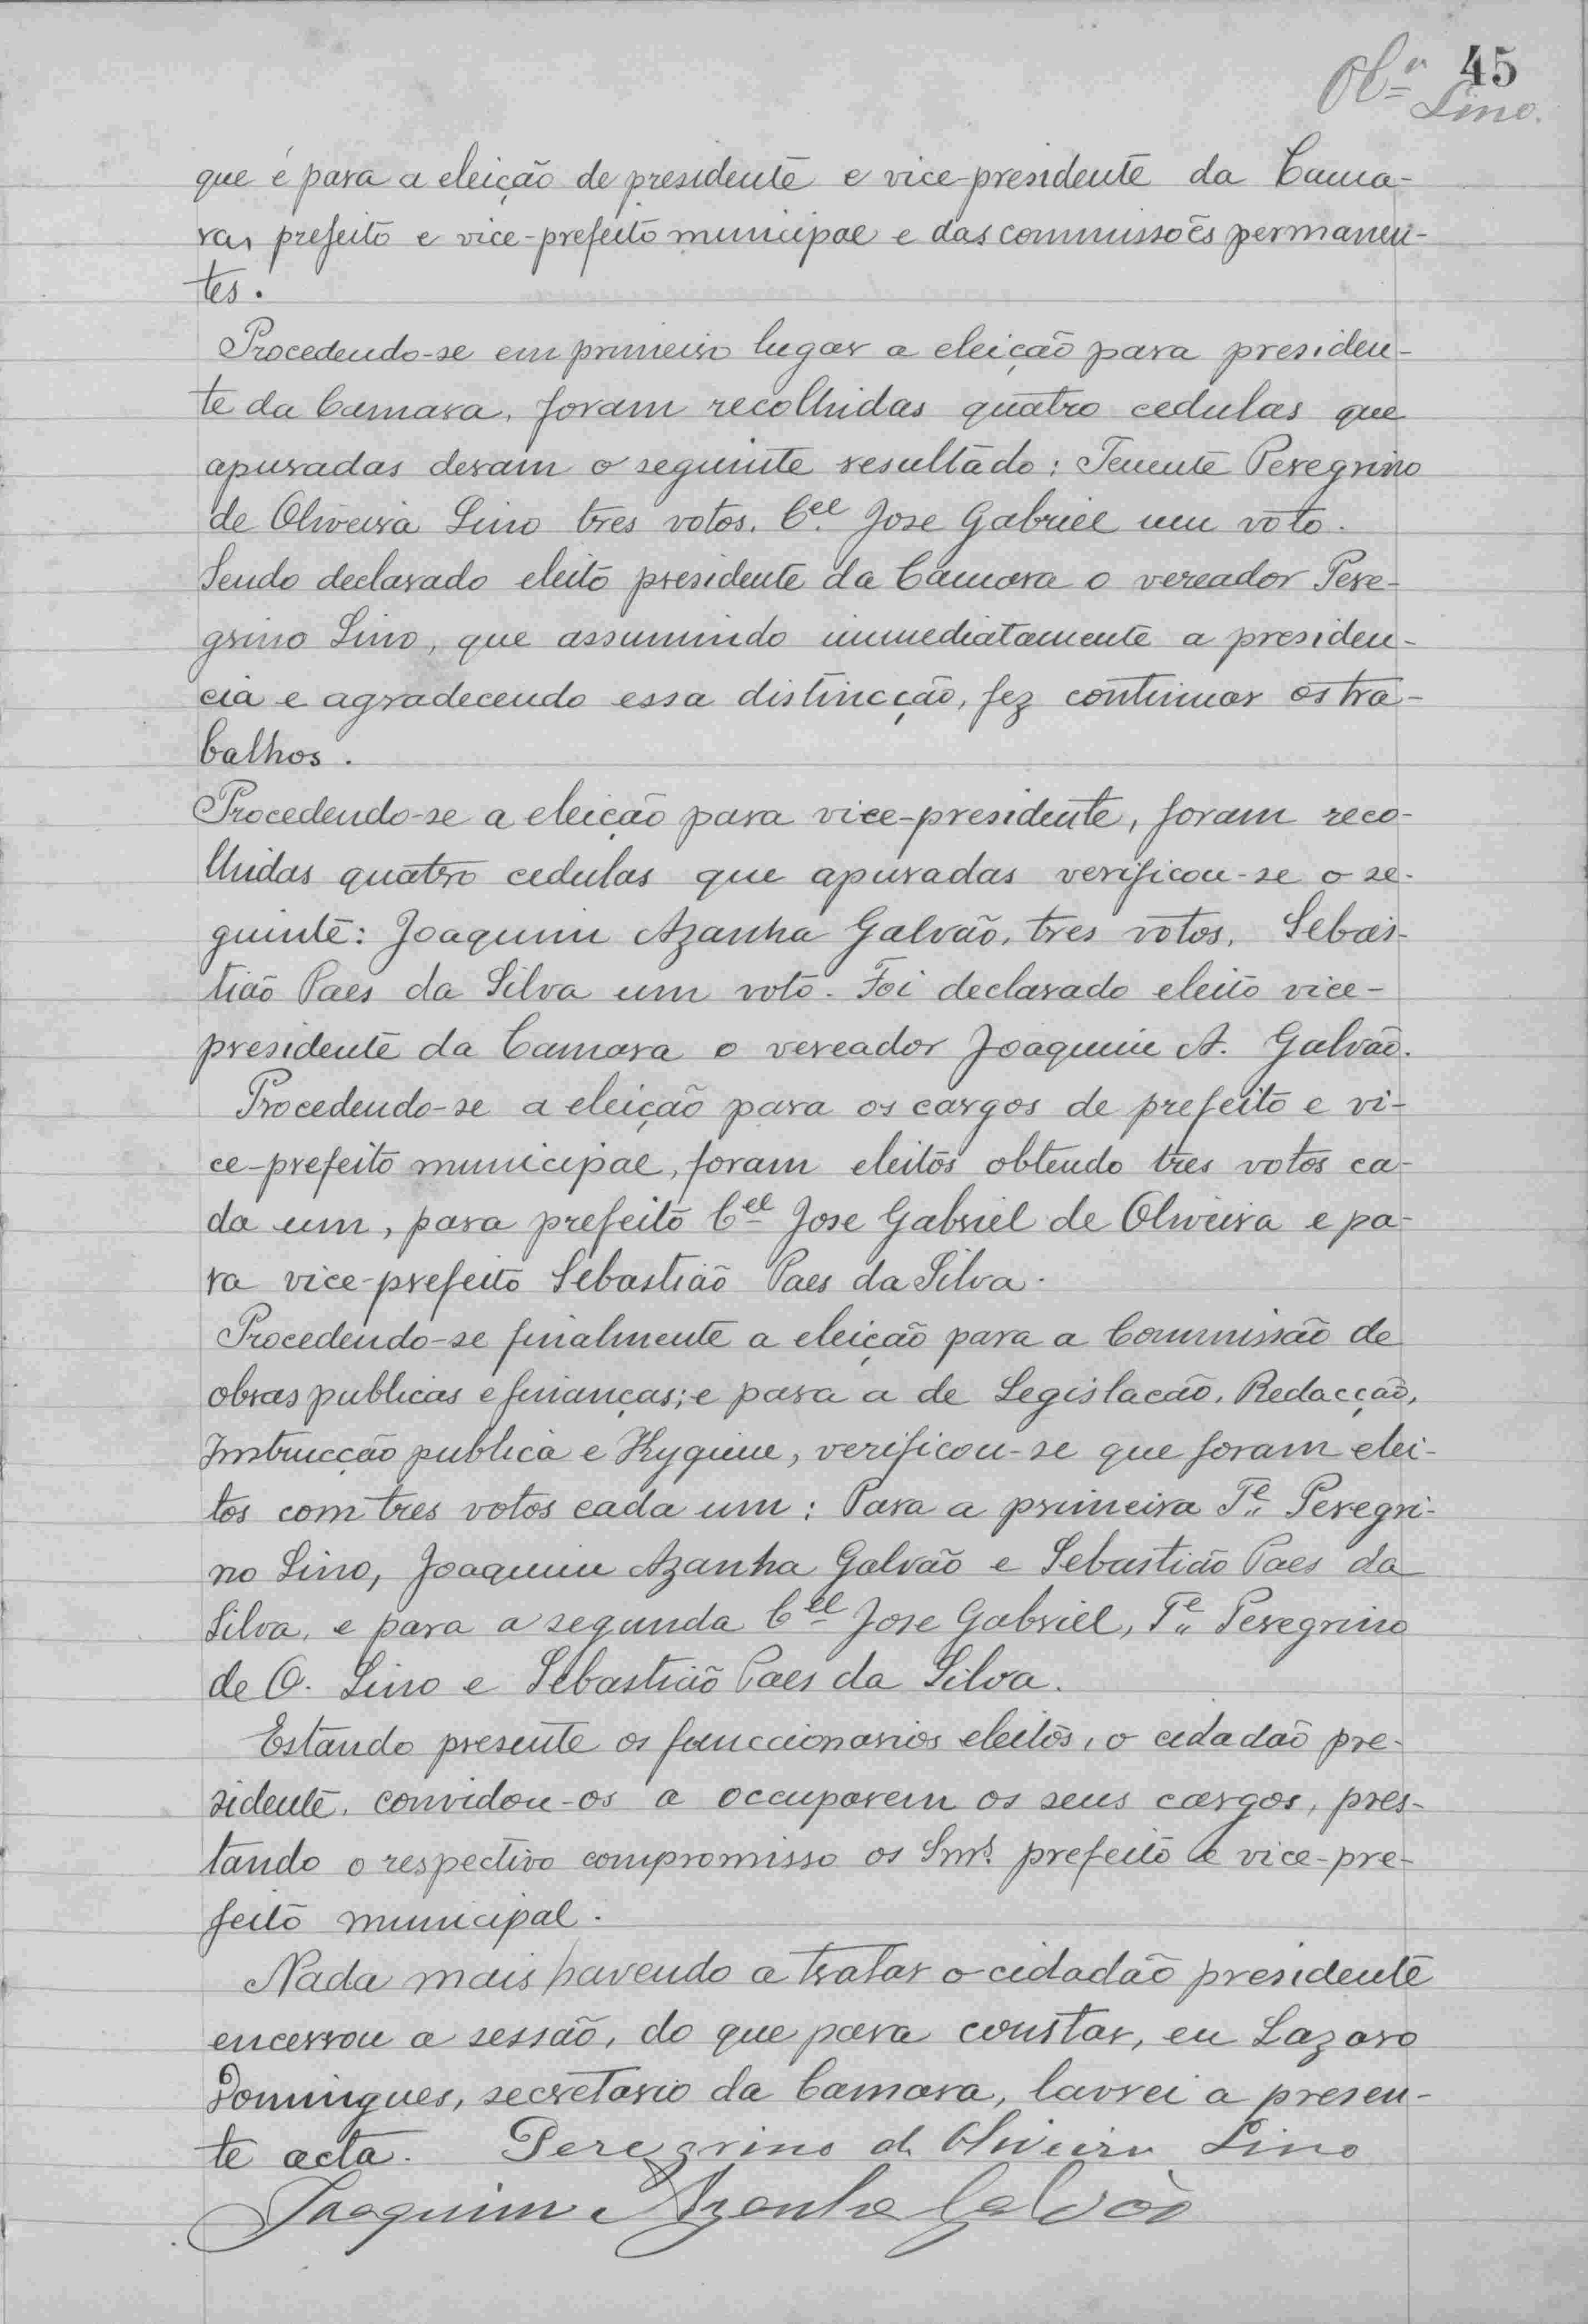 45
Olª Lino.
que é para a eleição de presidente e vice-presidente da Cama-
ra, prefeito e vice-prefeito municipal e das commissões permanen-
tes.
Procedendo-se em primeiro lugar a eleição para presiden-
te da Camara, foram recolhidas quatro cedulas que
apuradas deram o seguinte resultado: Tenente Peregrino
de Oliveira Lino tres votos. Cel. Jose Gabriel um voto.
Sendo declarado eleito presidente da Camara o vereador Pere-
grino Lino, que assumindo immediatamente a presiden-
cia e agradecendo essa distincção, fez continuar os tra-
balhos.
Procedendo-se a eleição para vice-presidente, foram reco-
lhidas quatro cedulas que apuradas verificou-se o se-
guinte: Joaquim Azanha Galvão, tres votos, Sebas-
tião Paes da Silva um voto. Foi declarado eleito vice-
presidente da Camara o vereador Joaquim A. Galvão.
Procedendo-se a eleição para os cargos de prefeito e vi-
ce-prefeito municipal, foram eleitos obtendo tres votos ca-
da um, para prefeito Cel Jose Gabriel de Oliveira e pa-
ra vice-prefeito Sebastião Paes da Silva.
Procedendo-se finalmente a eleição para a Commissão de
obras publicas e finanças; e para a de Legislacão, Redacção,
Instrucção publica e Hygiene, verificou-se que foram elei-
tos com tres votos cada um: Para a primeira Te Peregri-
no Lino, Joaquim Azanha Galvão e Sebastião Paes da
Silva, e para a segunda Cel Jose Gabriel, Te Peregrino
de O. Lino e Sebastião Paes da Silva.
Estando presente os funccionarios eleitos, o cidadão pre-
sidente, convidou-os a occuparem os seus cargos, pres-
tando o respectivo compromisso os Snrs. prefeito e vice-pre-
feito municipal.
Nada mais havendo a tratar o cidadão presidente
encerrou a sessão, do que para constar, eu Lazaro
Domingues, secretario da Camara, lavrei a presen-
te acta. Peregrino de Oliveira Lino
Joaquim Azanha Galvão